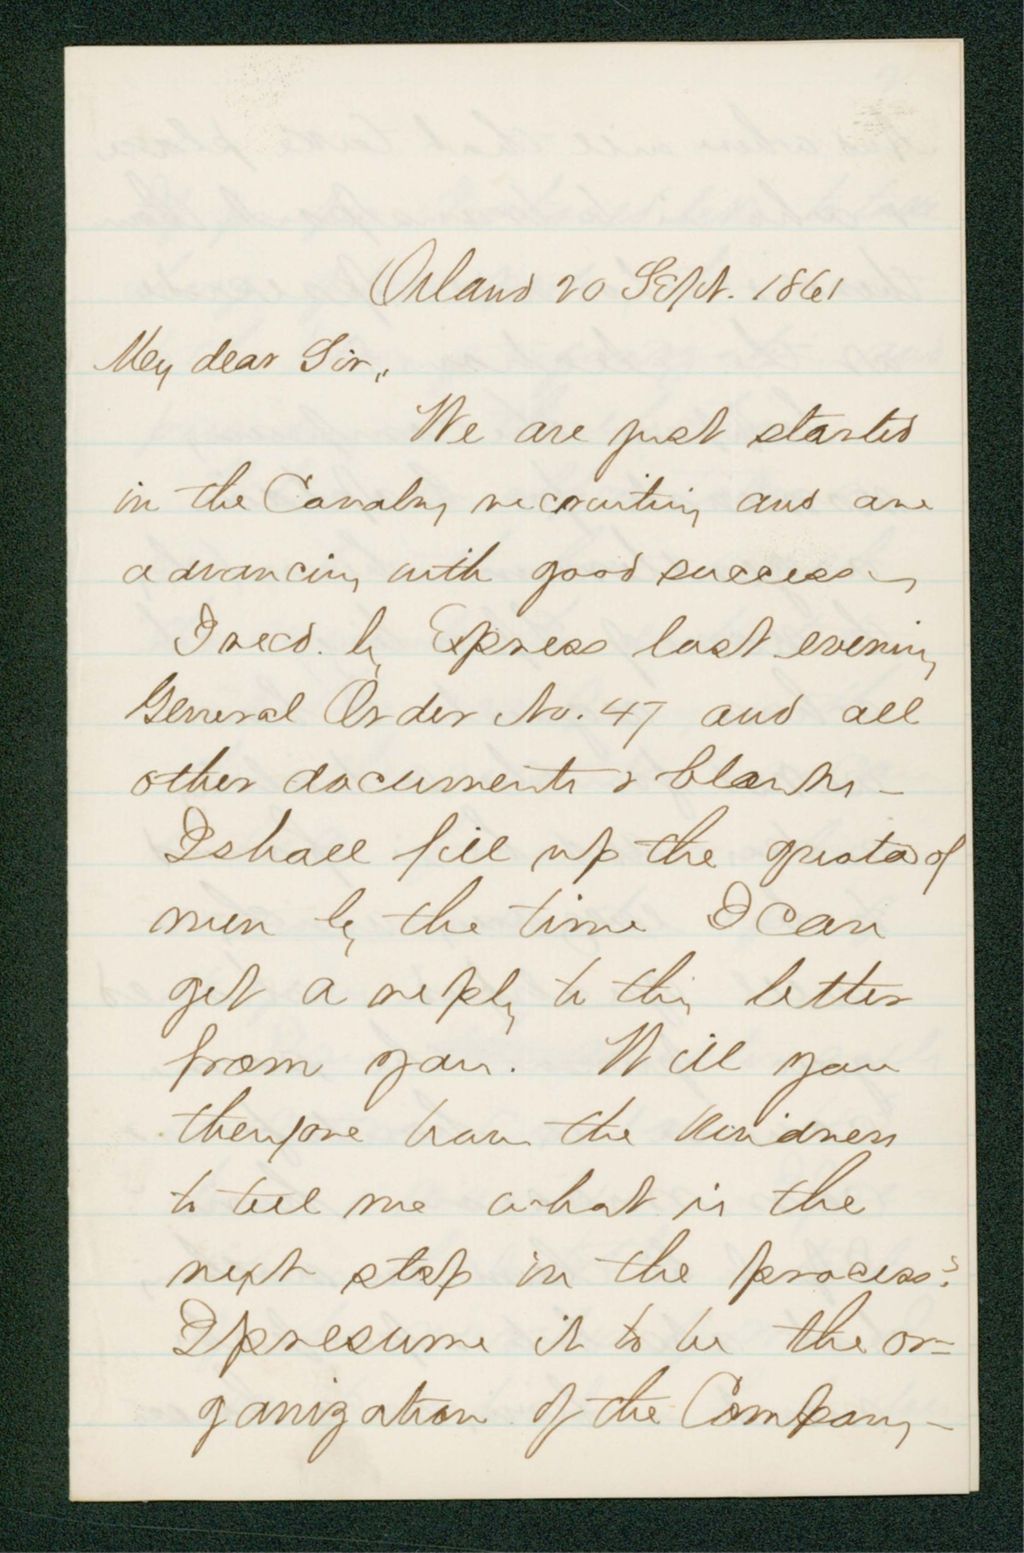 Orland 20 Sept. 1861
My dear Sir,
We are just started
in the Cavalry recruiting and are
advancing with good success -
I recd. by Express last evening
General Order No. 47 and all
other documents & blanks -
I shall fill up the quota of
men by the time I can
get a reply to this letter
from you. Will you
therefore have the kindness
to tell me what is the
next step in the process?
I presume it to be the or=
ganization of the Company -